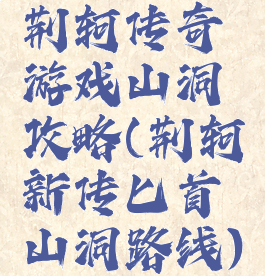 荆轲传奇
游戏山洞
攻略(荆轲
新传匕首
山洞路线)